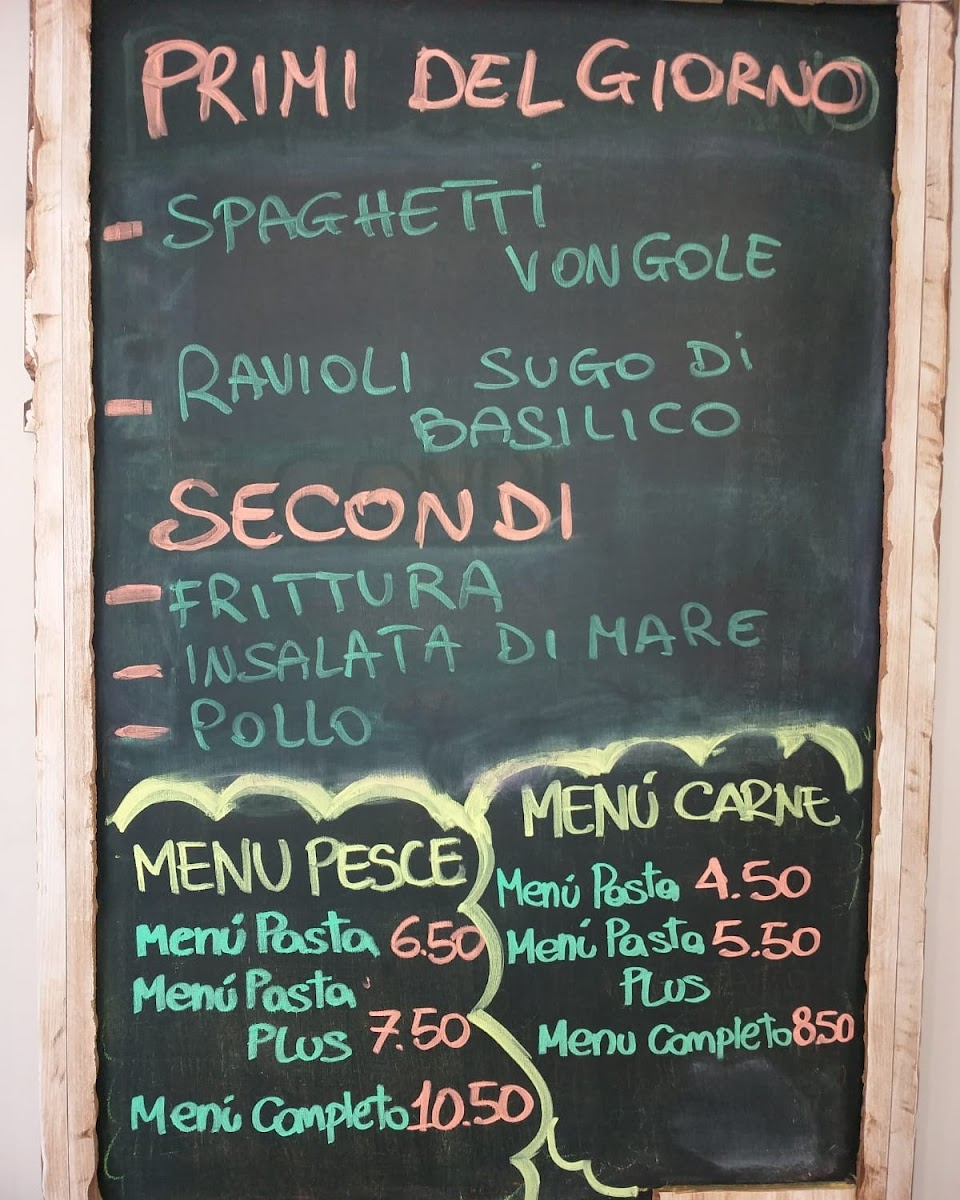 PRIMI DEL GIORNO
- SPAGHETTI
VONGOLE
- RAVIOLI SUGO DI
BASILICO
SECONDI
- FRITTURA
- INSALATA DI MARE
- POLLO
MENU PESCE
Menú Pasta 6.50
Menú Pasta
Plus 7.50
Menú Completo 10.50
MENÚ CARNE
Menú Pasta 4.50
Mení Pasta 5.50
Plus
Menu Completo 8.50